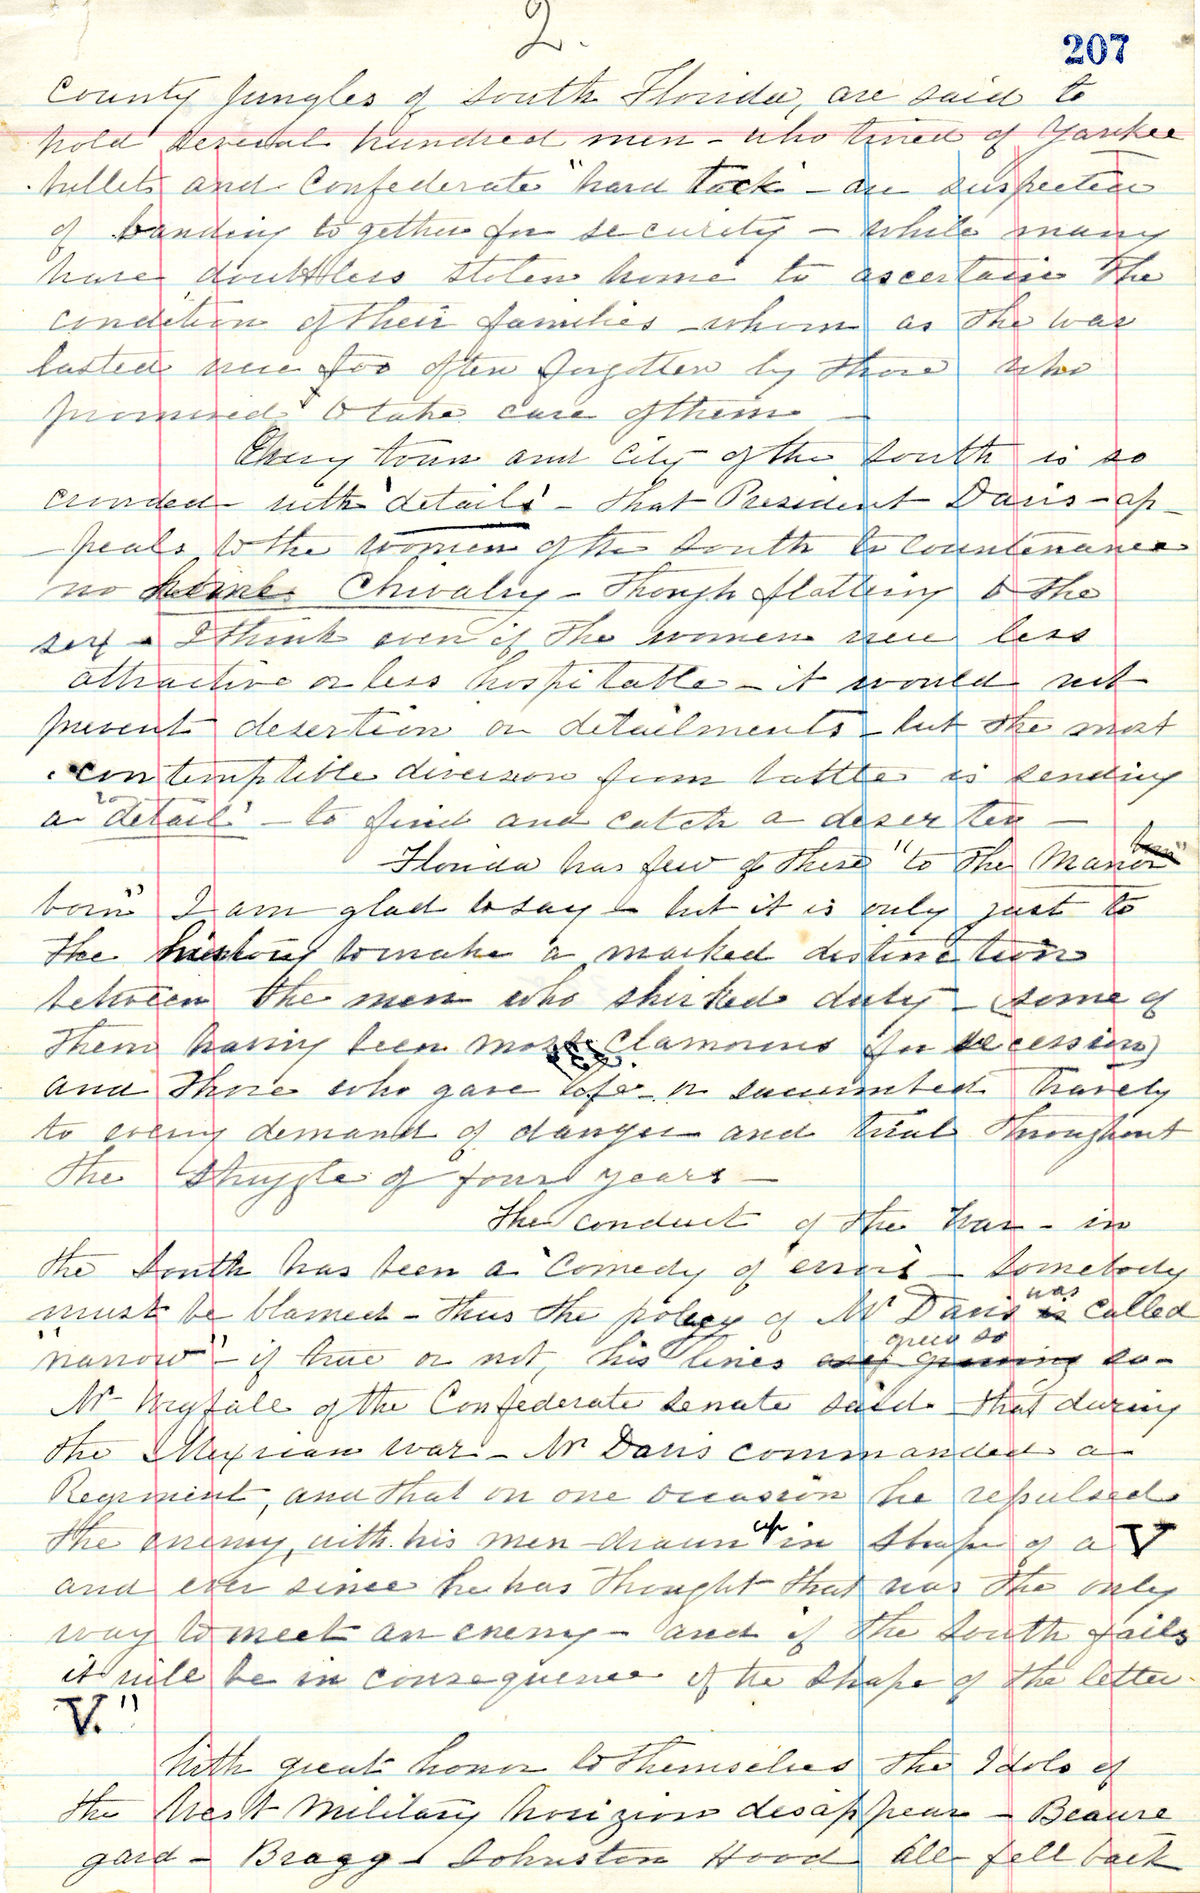 2.
207
County Jungles of South Florida, are said to
hold several hundred men - who tired of Yankee
bullets and Confederate "hard tack" - are suspected
of banding together for security - while many
have doubtless stolen home to ascertain the
condition of their families - whom as the war
lasted were too often forgotten by those who
promised to take care of them -
Every town and City of the South is so
crowded with 'details' - that President Davis - ap-
-peals to the women of the South to countenance
no home Chivalry - Though flattering to the
sex - I think even if the women were less
attractive or less hospitable - it would not
prevent desertion or detailments - but the most
contemptible diversion from battle is sending
a "detail" - to find and catch a deserter -
Florida has few of these "to the Manor
born" I am glad to say - but it is only just to
the history to make a marked distinction
between the men who shirked duty - (some of
them having been most clamorous for secession)
and those who gave life - or succumbed bravely
to every demand of danger and trial throughout
the struggle of four years -
The conduct of the War - in
the South has been a "Comedy of errors - Somebody
must be blamed - thus the policy of Mr Davis was called
"narrow" - if true or not, his lines grew so
so -
Mr Wigfall of the Confederate Senate said - that during
the Mexican War - Mr Davis commanded a
Regiment, and that on one occasion he repulsed
the enemy, with his men drawn up in shape of a V
and ever since he has thought that was the only
way to meet an enemy - and if the South fails
it will be in consequence of the shape of the letter
V."
With great honor to themselves the Idols of
the West Military horizon disappear - Beaure
gard - Bragg - Johnston Hood all fell back